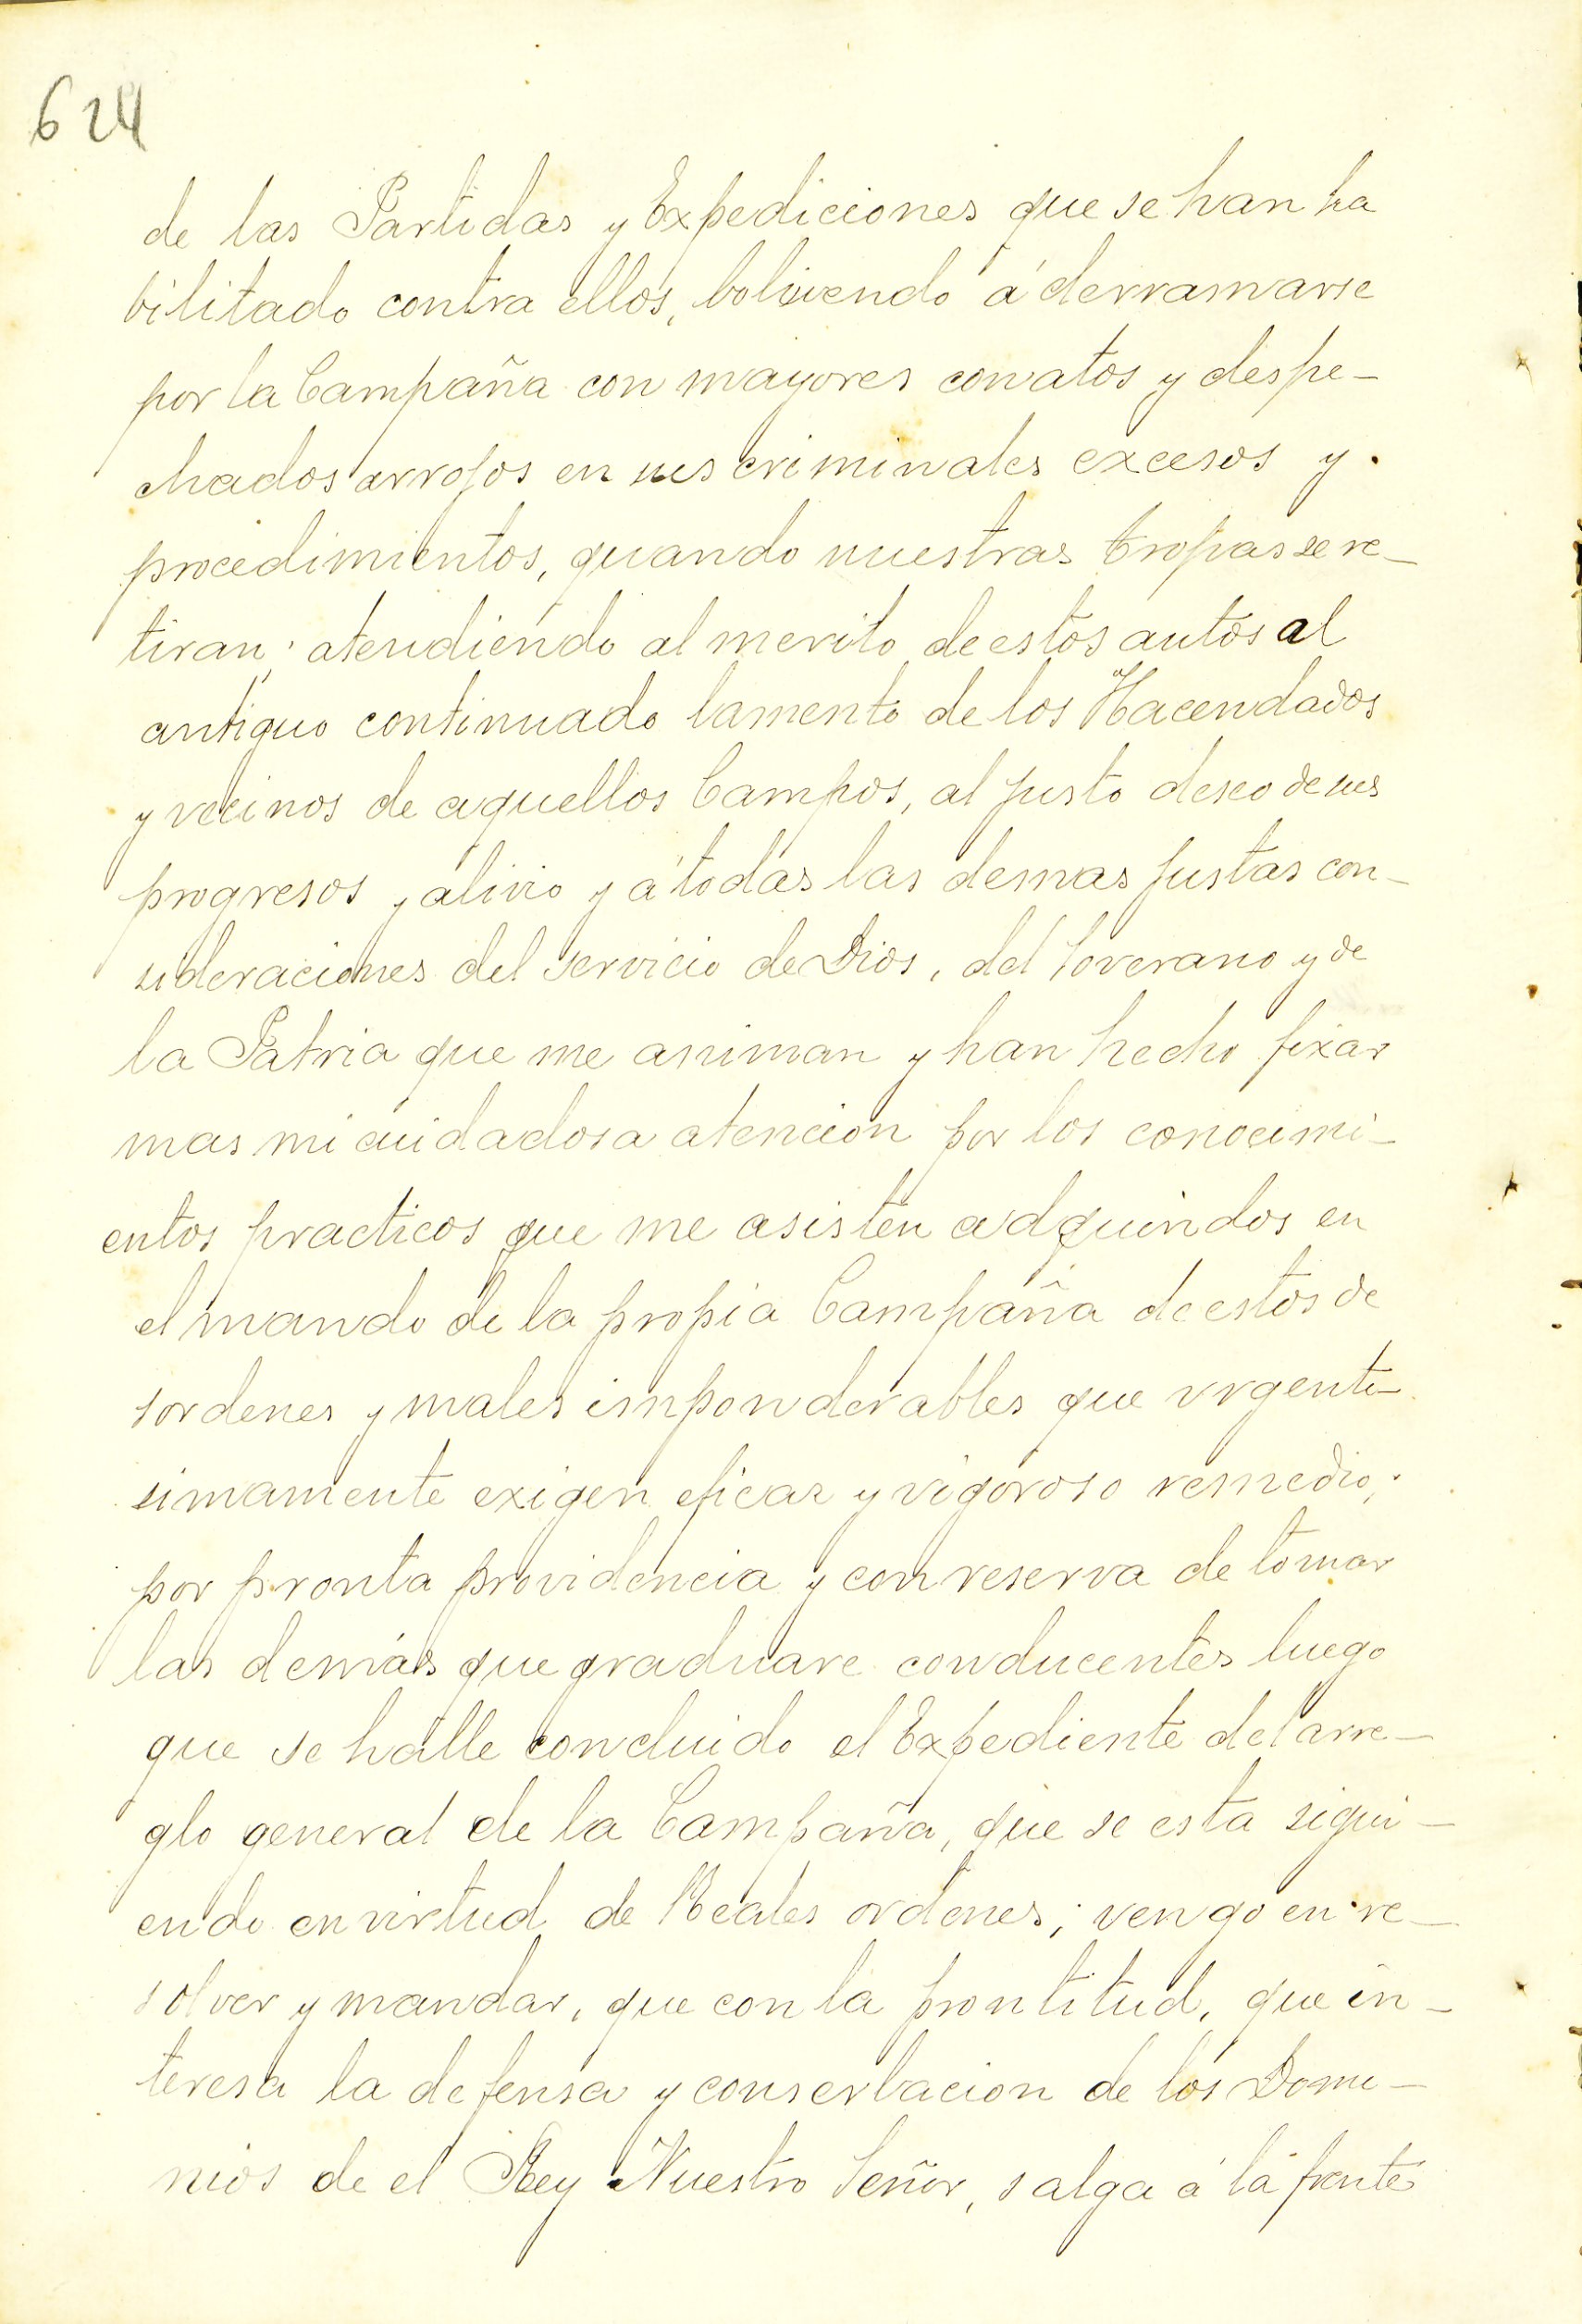 624
de las Partidas y Expediciones que se han ha
bilitado contra ellos, bolviendo á derramarse
por la Campaña con mayores conatos y despe-
chados arrojos en sus criminales excesos y
procedimientos, quando nuestras tropas se re-
tiran; atendiendo al merito de estos autos al
antiguo continuado lamento de los Hacendados
y vecinos de aquellos Campos, al justo deseo de sus
progresos y alivio y á todas las demas justas con-
sideraciones del servicio de Dios, del Soverano y de
la Patria que me animan y han hecho fixar
mas mi cuidadosa atencion por los conocimi-
entos practicos que me asisten adquiridos en
el mando de la propia Campaña de estos de
sordenes y males imponderables que urgenti-
simamente exigen eficaz y vigoroso remedio;
por pronta providencia y con reserva de tomar
las demás que graduare conducentes luego
que se halle concluido el Expediente del arre-
glo general de la Campaña, que se esta sigui-
endo en virtud de Reales ordenes; vengo en re-
solver y mandar, que con la prontitud, que in-
teresa la defensa y conserbacion de los Domi-
nios de el Rey Nuestro Señor, salga á la frente